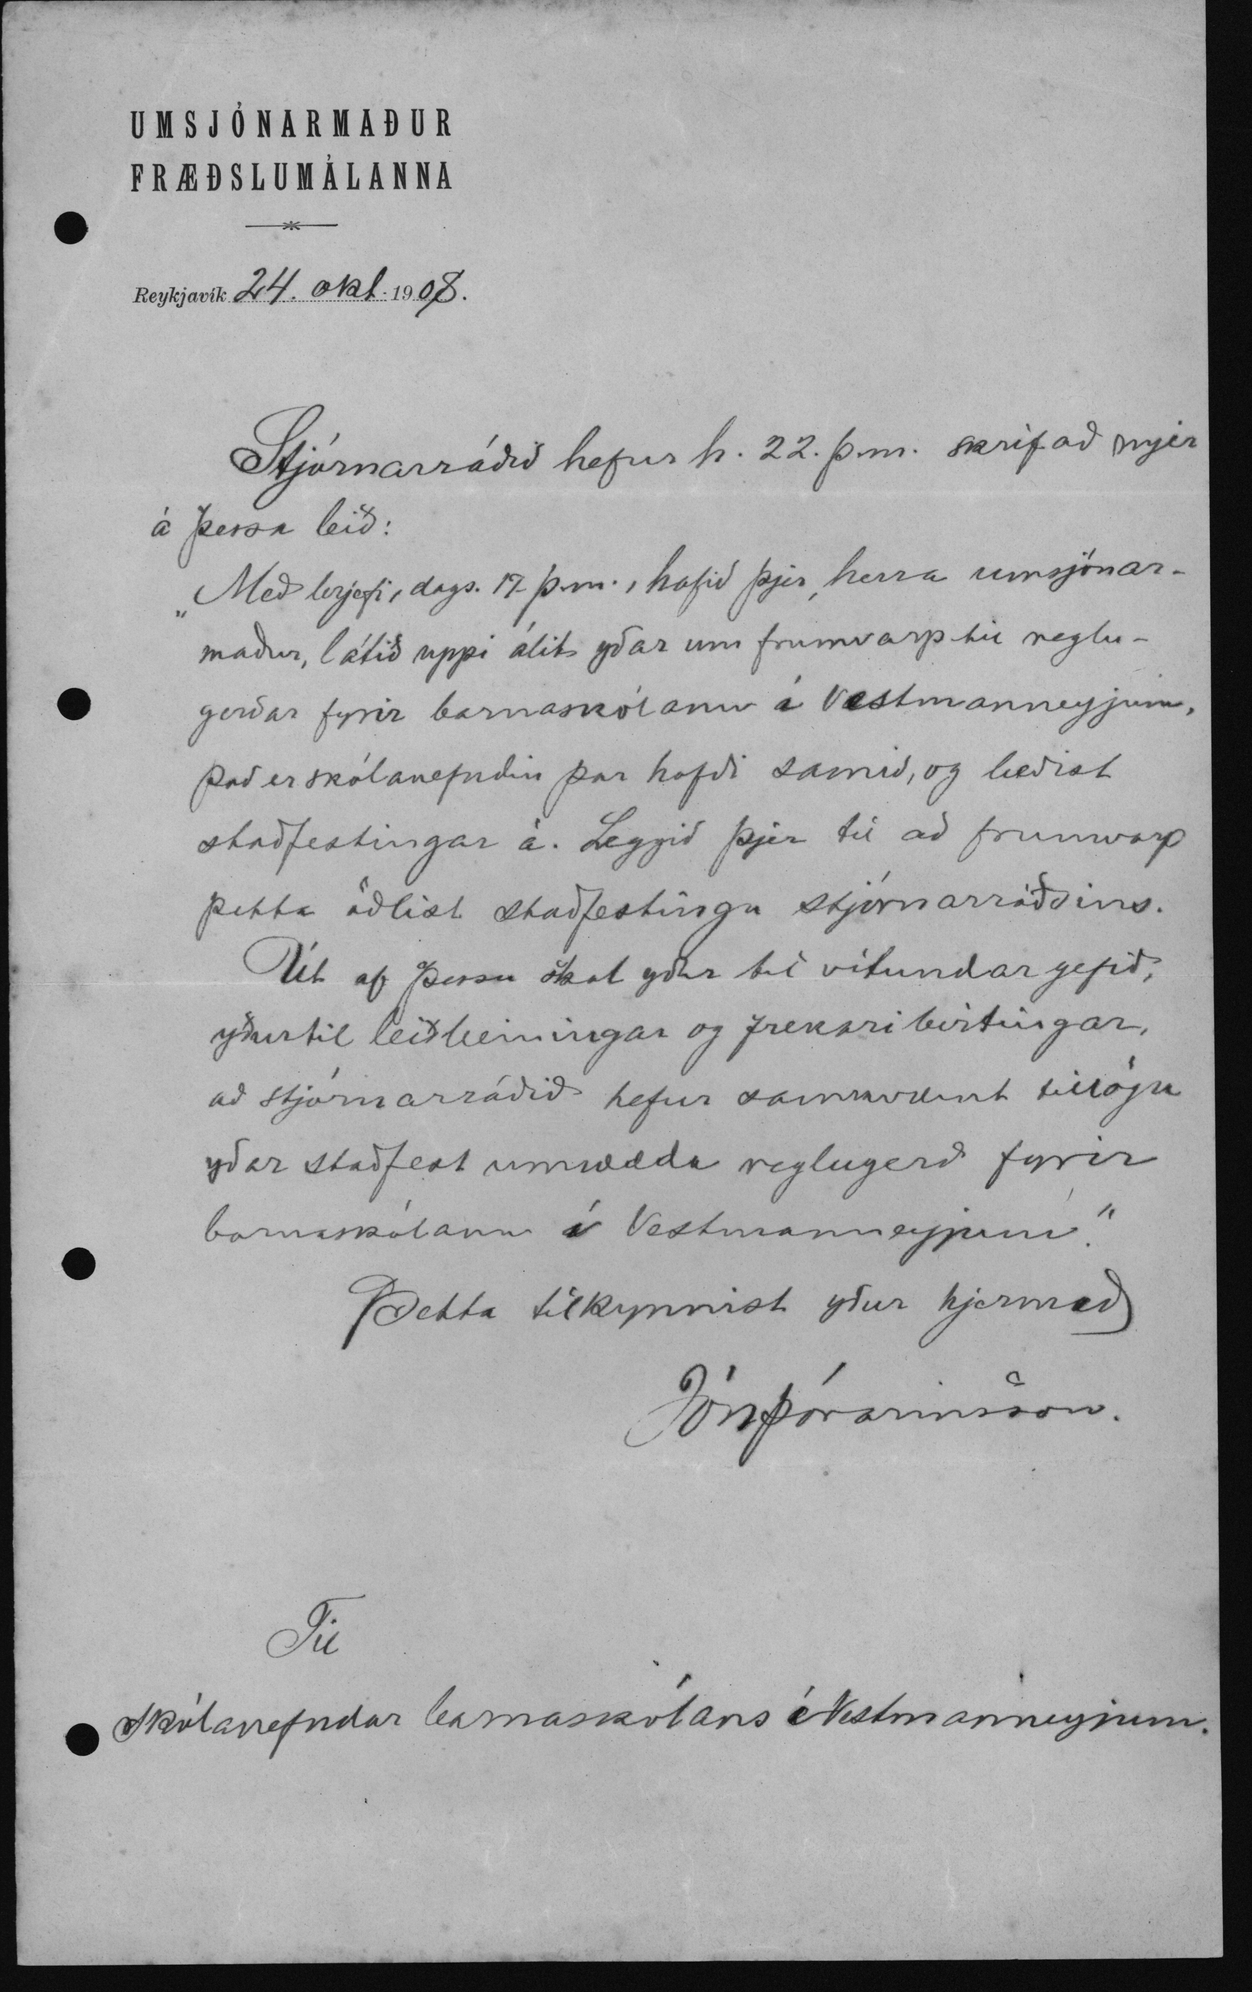 UMSJÓNARMAÐUR
FRÆÐSLUMÁLANNA
Reykjavík 24. okt. 1908.
Stjórnarráðið hefur h. 22. þ.m. skrifað mjer
á þessa leið:
„Með brjefi, dags. 17. þ.m., hafið þjer, herra umsjónar-
maður, látið uppi álit yðar um frumvarp til reglu-
gerðar fyrir barnaskólann í Vestmanneyjum,
það er skólanefndin þar hafði samið, og beðist
staðfestingar á. Leggið þjer til að frumvarp
þetta öðlist staðfestingu stjórnarráðsins.
Út af þessu skal yður til vitundar gefið,
yður til leiðbeiningar og frekari birtingar,
að stjórnarráðið hefur samkvæmt tillögu
yðar staðfest umrædda reglugerð fyrir
barnaskólann í Vestmanneyjum".
Þetta tilkynnist yður hjermeð
Jón Þórarinsson.
Til
skólanefndar barnaskólans í Vestmanneyjum.